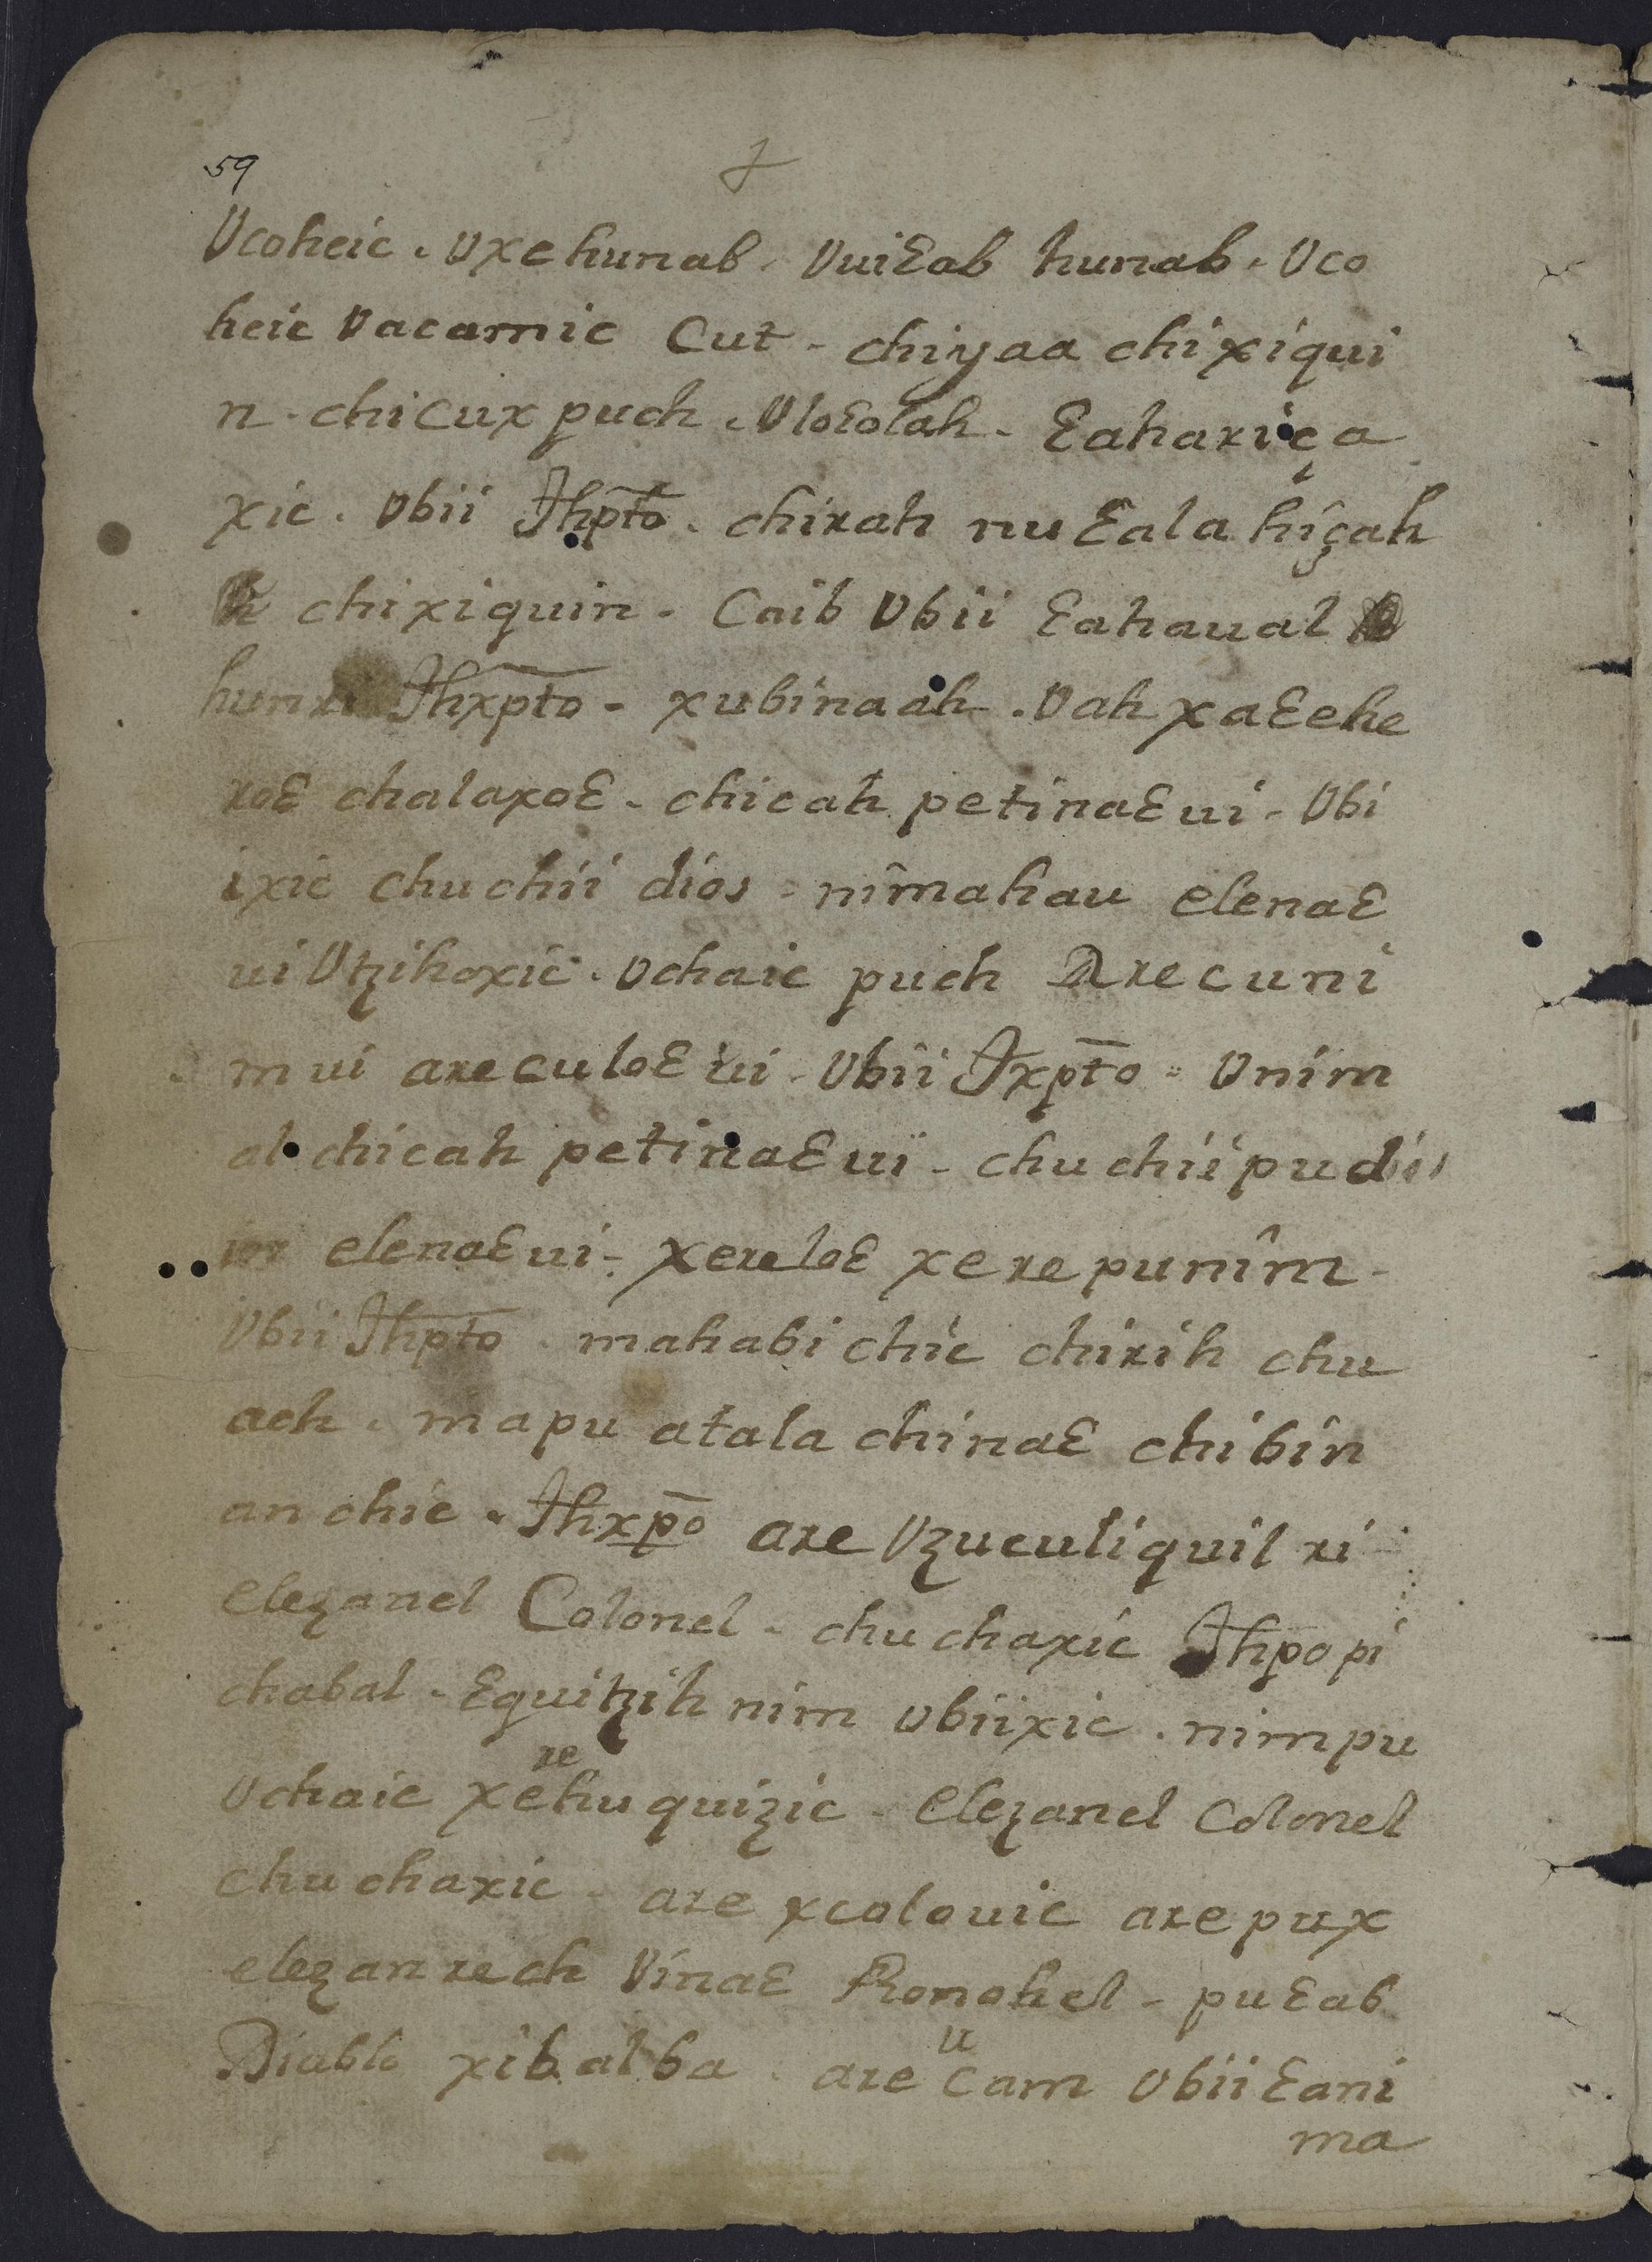 59
Vcoheic. vxehunab. Vuiɛab hunab. Vco
heic Vacamic Cut - chiyaa chixiqui
n. chicux puch. Vloɛolah. ɛahaxiça
xic. vbii Jhp̄to. chirah nuɛala hiçah
chixiquin. Caib Vbii ɛahaual
hunxi Jhxpto - xubinaah. Vah xaɛehe
xoɛ chalaxoɛ. chicah petinaɛui. Vbi
ixic chuchii dios - nimahau elenaɛ
ui Vtzihoxic. Vchaic puch Are cuni
m ui are culoɛ ui. Vbii Jxp̄to - Vnim
al chicah petinaɛui - chuchii pu di
elenaɛui - xereloɛ xere punim -
Vbii Jhpto. mahabi chic chirih chu
ach. mapu atala chinaɛ chibin
an chic. Jhxp̄o are Vzucutiquil ri
elezanel Colonel - chuchaxic Jhpo pi
chabal - ɛquitzih nim vbiixic. nim pu
re
Vchaic xehuquizic - elezanel Colonel
chuchaxic - are xcolouic are pux
elezan rech Vinaɛ Ronohel - puɛab
u
Diablo xibalba. are cam Vbii ɛani
ma